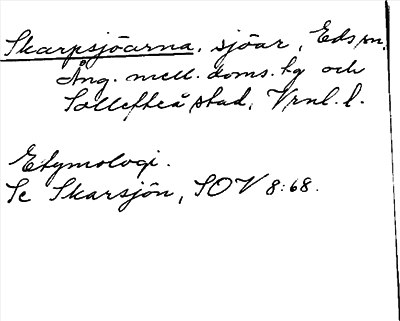 Skarpsjöarna, sjöar, Eds sn,
Ång. mell. doms. hg och
Sollefteå stad, Vrnl. l.
Etymologi.
Se Skarsjön, SOV 8:68.